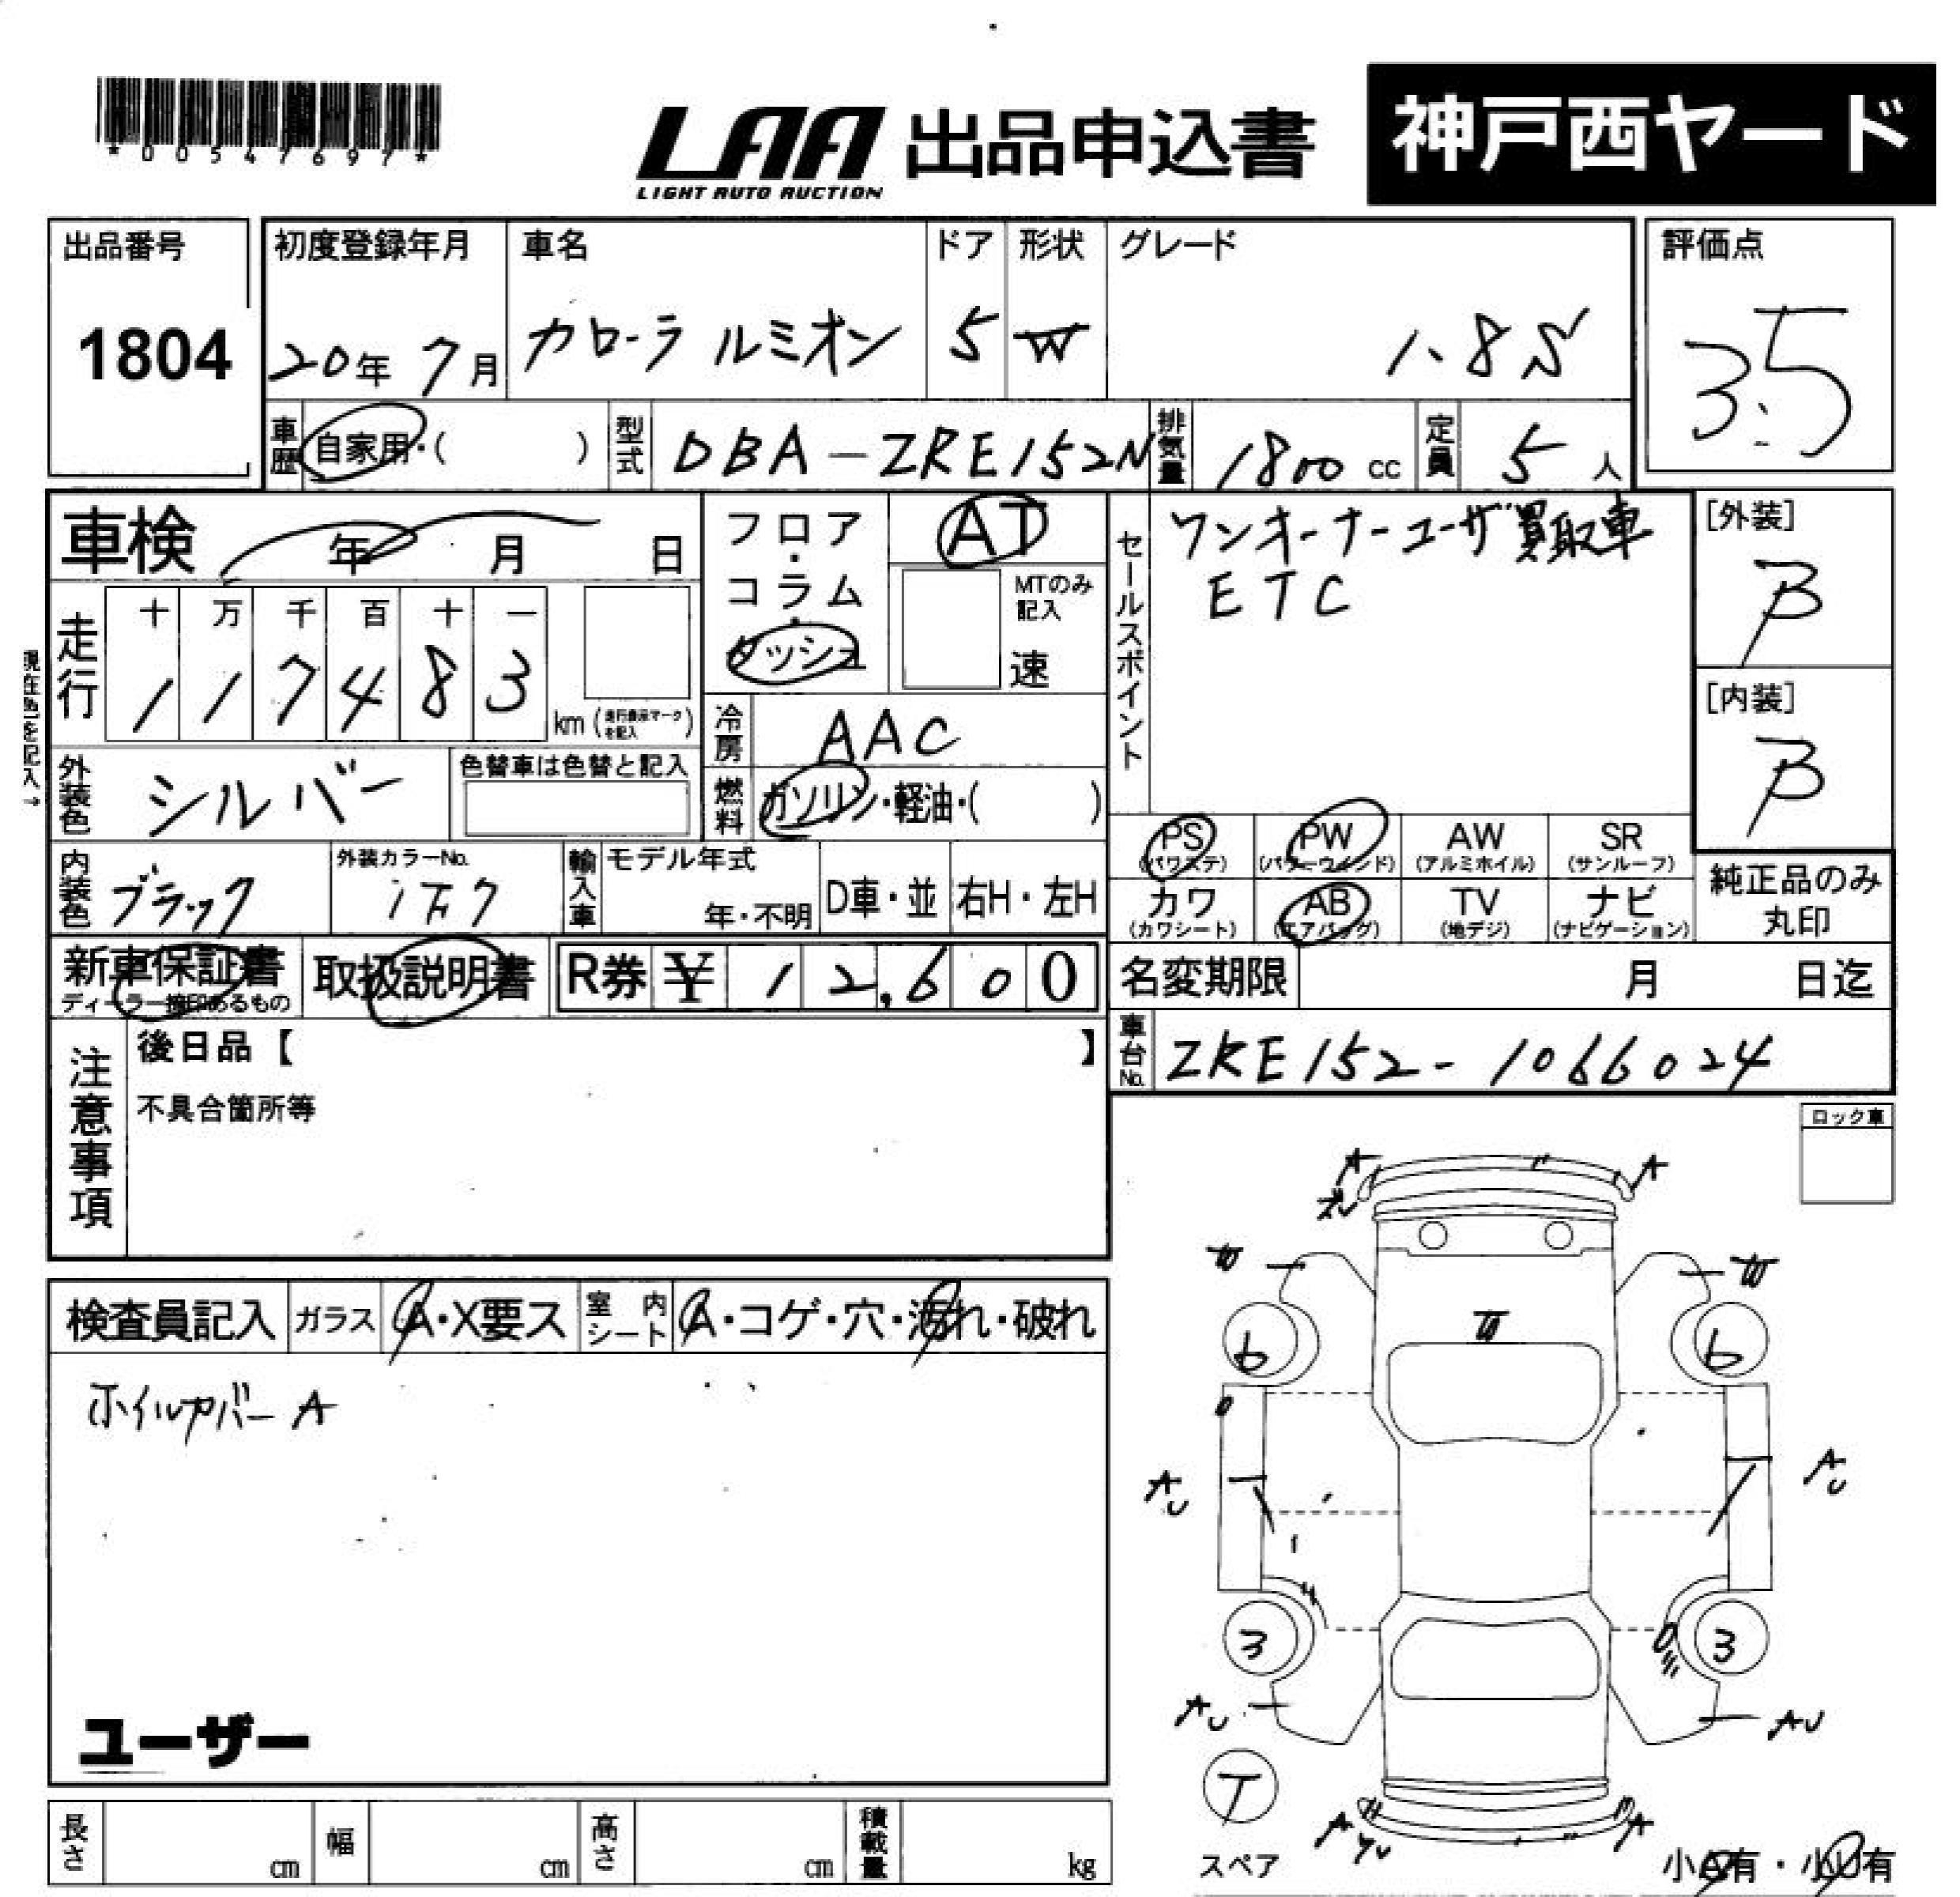 *00547697*
LAA 出品申込書 神戸西ヤード
LIGHT AUTO AUCTION
出品番号
1804
初度登録年月
20年 7月
車名
カローラ ルミオン
ドア
5
形状
W
グレード
1.8S
評価点
3.5
車歴 自家用・( )
型式 DBA-ZRE152N
排気量 1800 cc
定員 5 人
車検 年 月 日
フロア・コラム・ダッシュ
AT
MTのみ記入
速
セールスポイント
ワンオーナーユーザ買取車
ETC
[外装]
B
[内装]
B
現在色を記入→
走行
十 万 千 百 十 一
1 1 7 4 8 3
km (走行表示マークを記入)
冷房 AAC
燃料 ガソリン・軽油・( )
外装色 シルバー
色替車は色替と記入
内装色 ブラック
外装カラーNo.
1F7
輸入車 モデル年式
年・不明
D車・並 右H・左H
PS (パワステ)
PW (パワーウィンド)
AW (アルミホイル)
SR (サンルーフ)
カワ (カワシート)
AB (エアバッグ)
TV (地デジ)
ナビ (ナビゲーション)
純正品のみ
丸印
新車保証書
ディーラー捺印あるもの
取扱説明書
R券 ¥ 12,600
名変期限 月 日迄
車台No. ZRE152-1066024
注意事項
後日品【 】
不具合箇所等
ロック車
検査員記入 ガラス A・X要ス 室内シート A・コゲ・穴・汚れ・破れ
ホイルカバー A
ユーザー
A A
W W
W
6 6
AU AU
3 3
AU AU
T
A A
スペア
小A有・小U有
長さ cm 幅 cm 高さ cm 積載量 kg